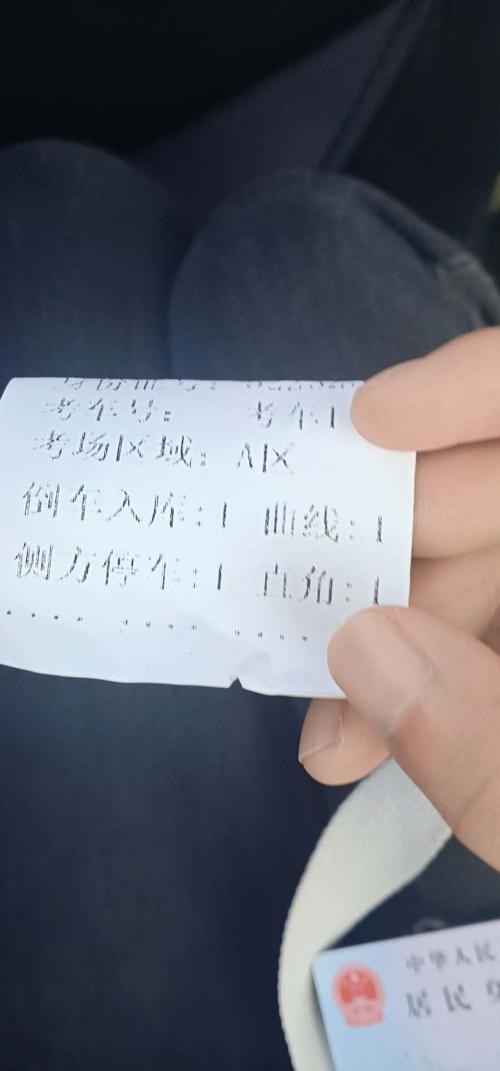 考车号： 考车1
考场区域：A区
倒车入库:1 曲线:1
侧方停车:1 直角:1
中华人民
居民